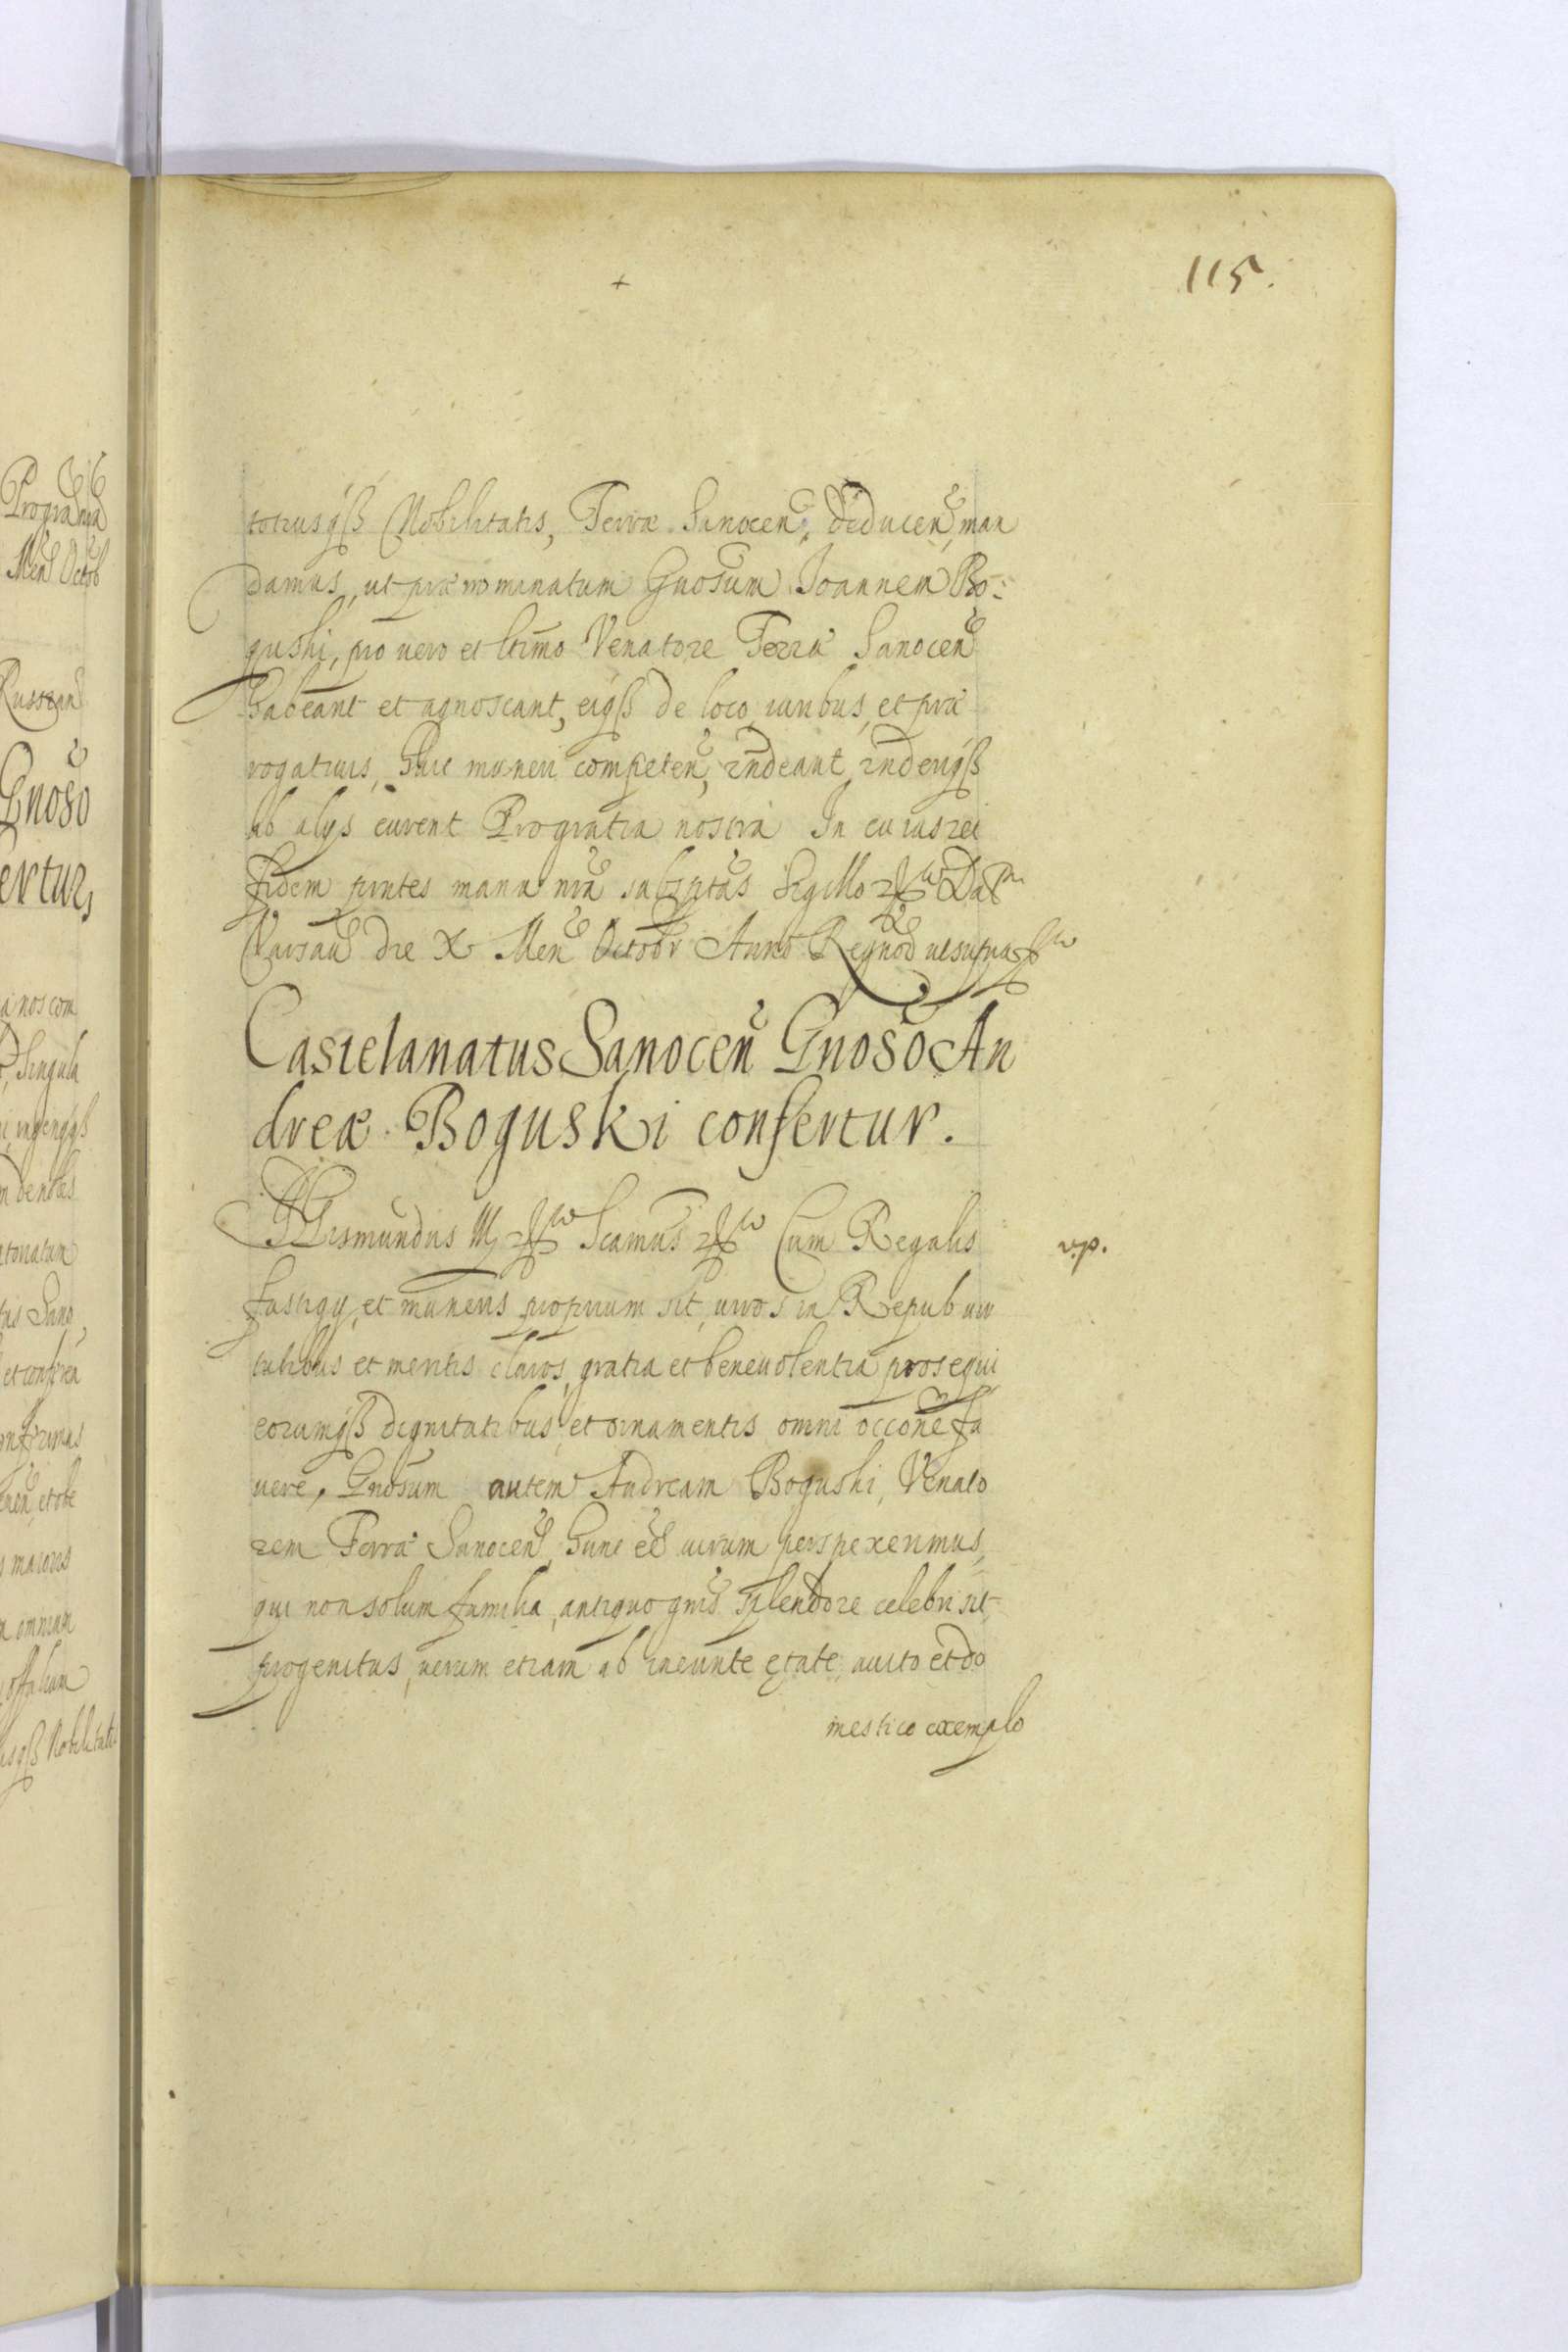 115.
totiusqß Nobilitatis, Terræ Sanoceñ, deducen, man
damus, ut prænominatum Gnosum Joannem Bo-
guski, pro vero et ltimo Venatore Terræ Sanoceñ
habeant et agnoscant, eiqß de loco iuribus, et præ
rogatiuis, huic muneri competeñ, rndeant rnderiqß
ab alys curent Pro gratia nostra In cuius rei
fidem pntes manu nra subscptas Sigillo Dat
Varsau die X Men Octobr Anno Regnoᷣ ut supra
Castelanatus Sanoceñ Gnoso An
dreæ Boguski confertur.
Sigismundus III Scamus Cum Regalis
fastigy, et muneris proprium sit, viros in Repub vir
tutibus et meritis claros, gratia et beneuolentia prosequi
eorumqß dignitatibus, et ornamentis omni occone fa
uere, Gnosum autem Andream Boguski, Venato
rem Terræ Sanoceñ, hunc eẽ uirum perspexerimus,
qui non solum familia, antiquo gnis splendore celebri sit
progenitus, verum etiam ab ineunte ętate, auito et do
mestico exemplo